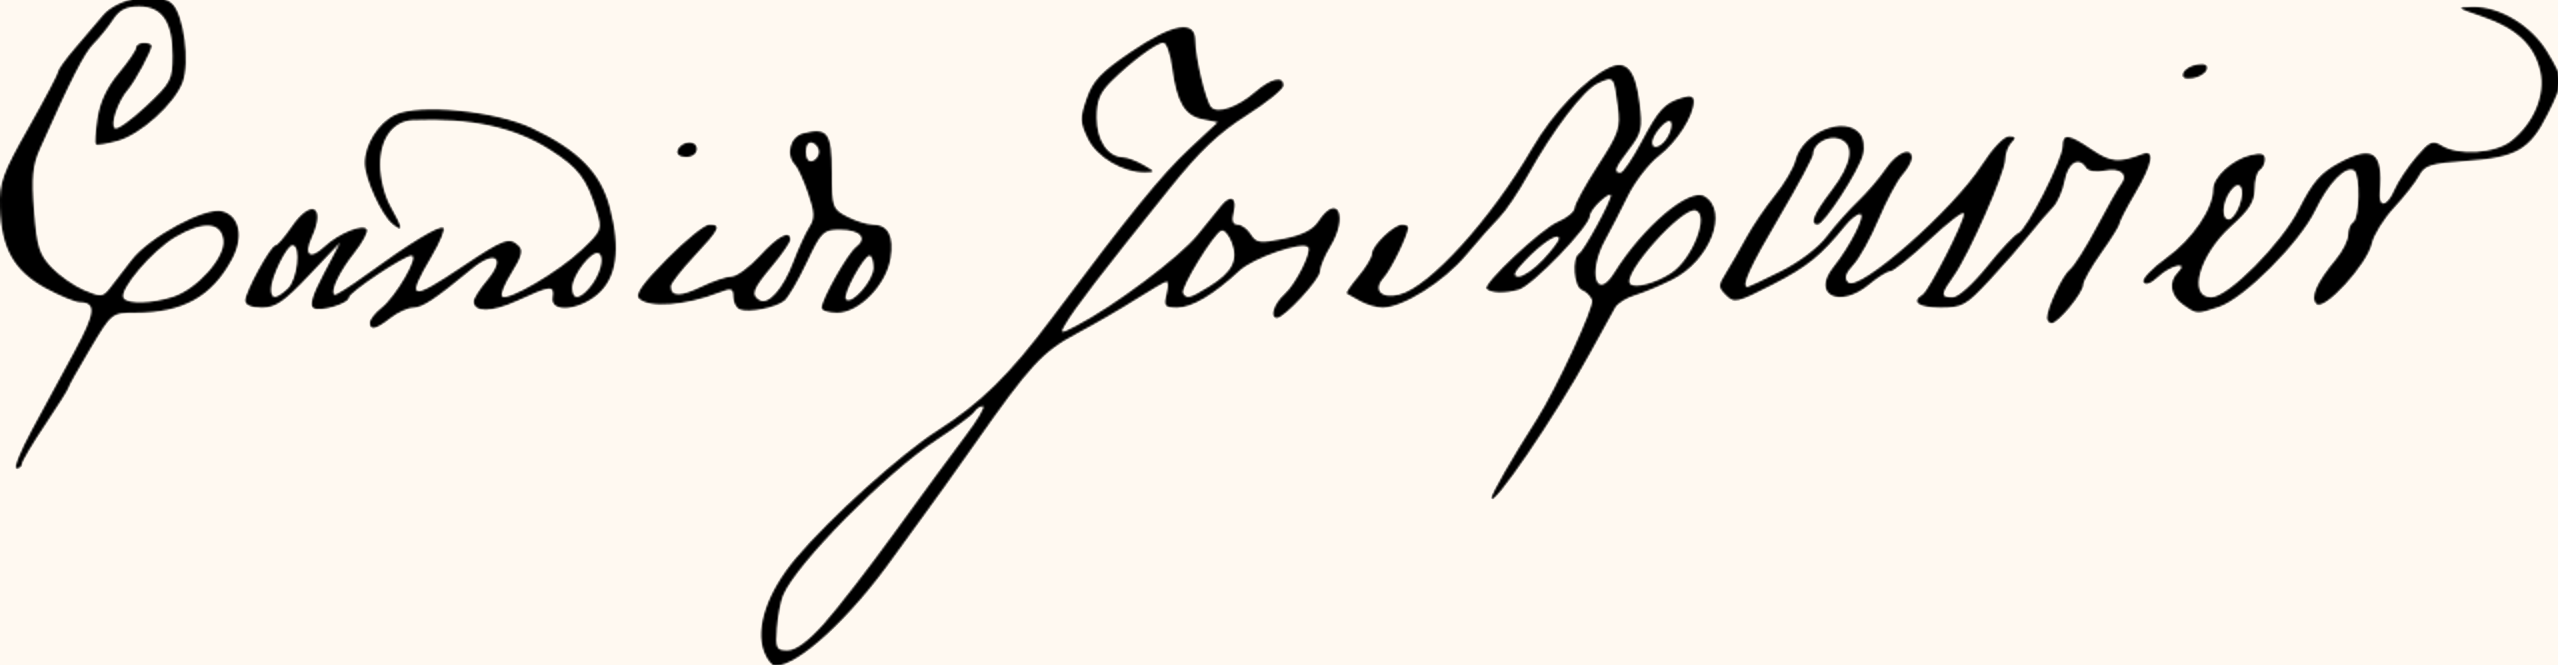 Candido José Xavier